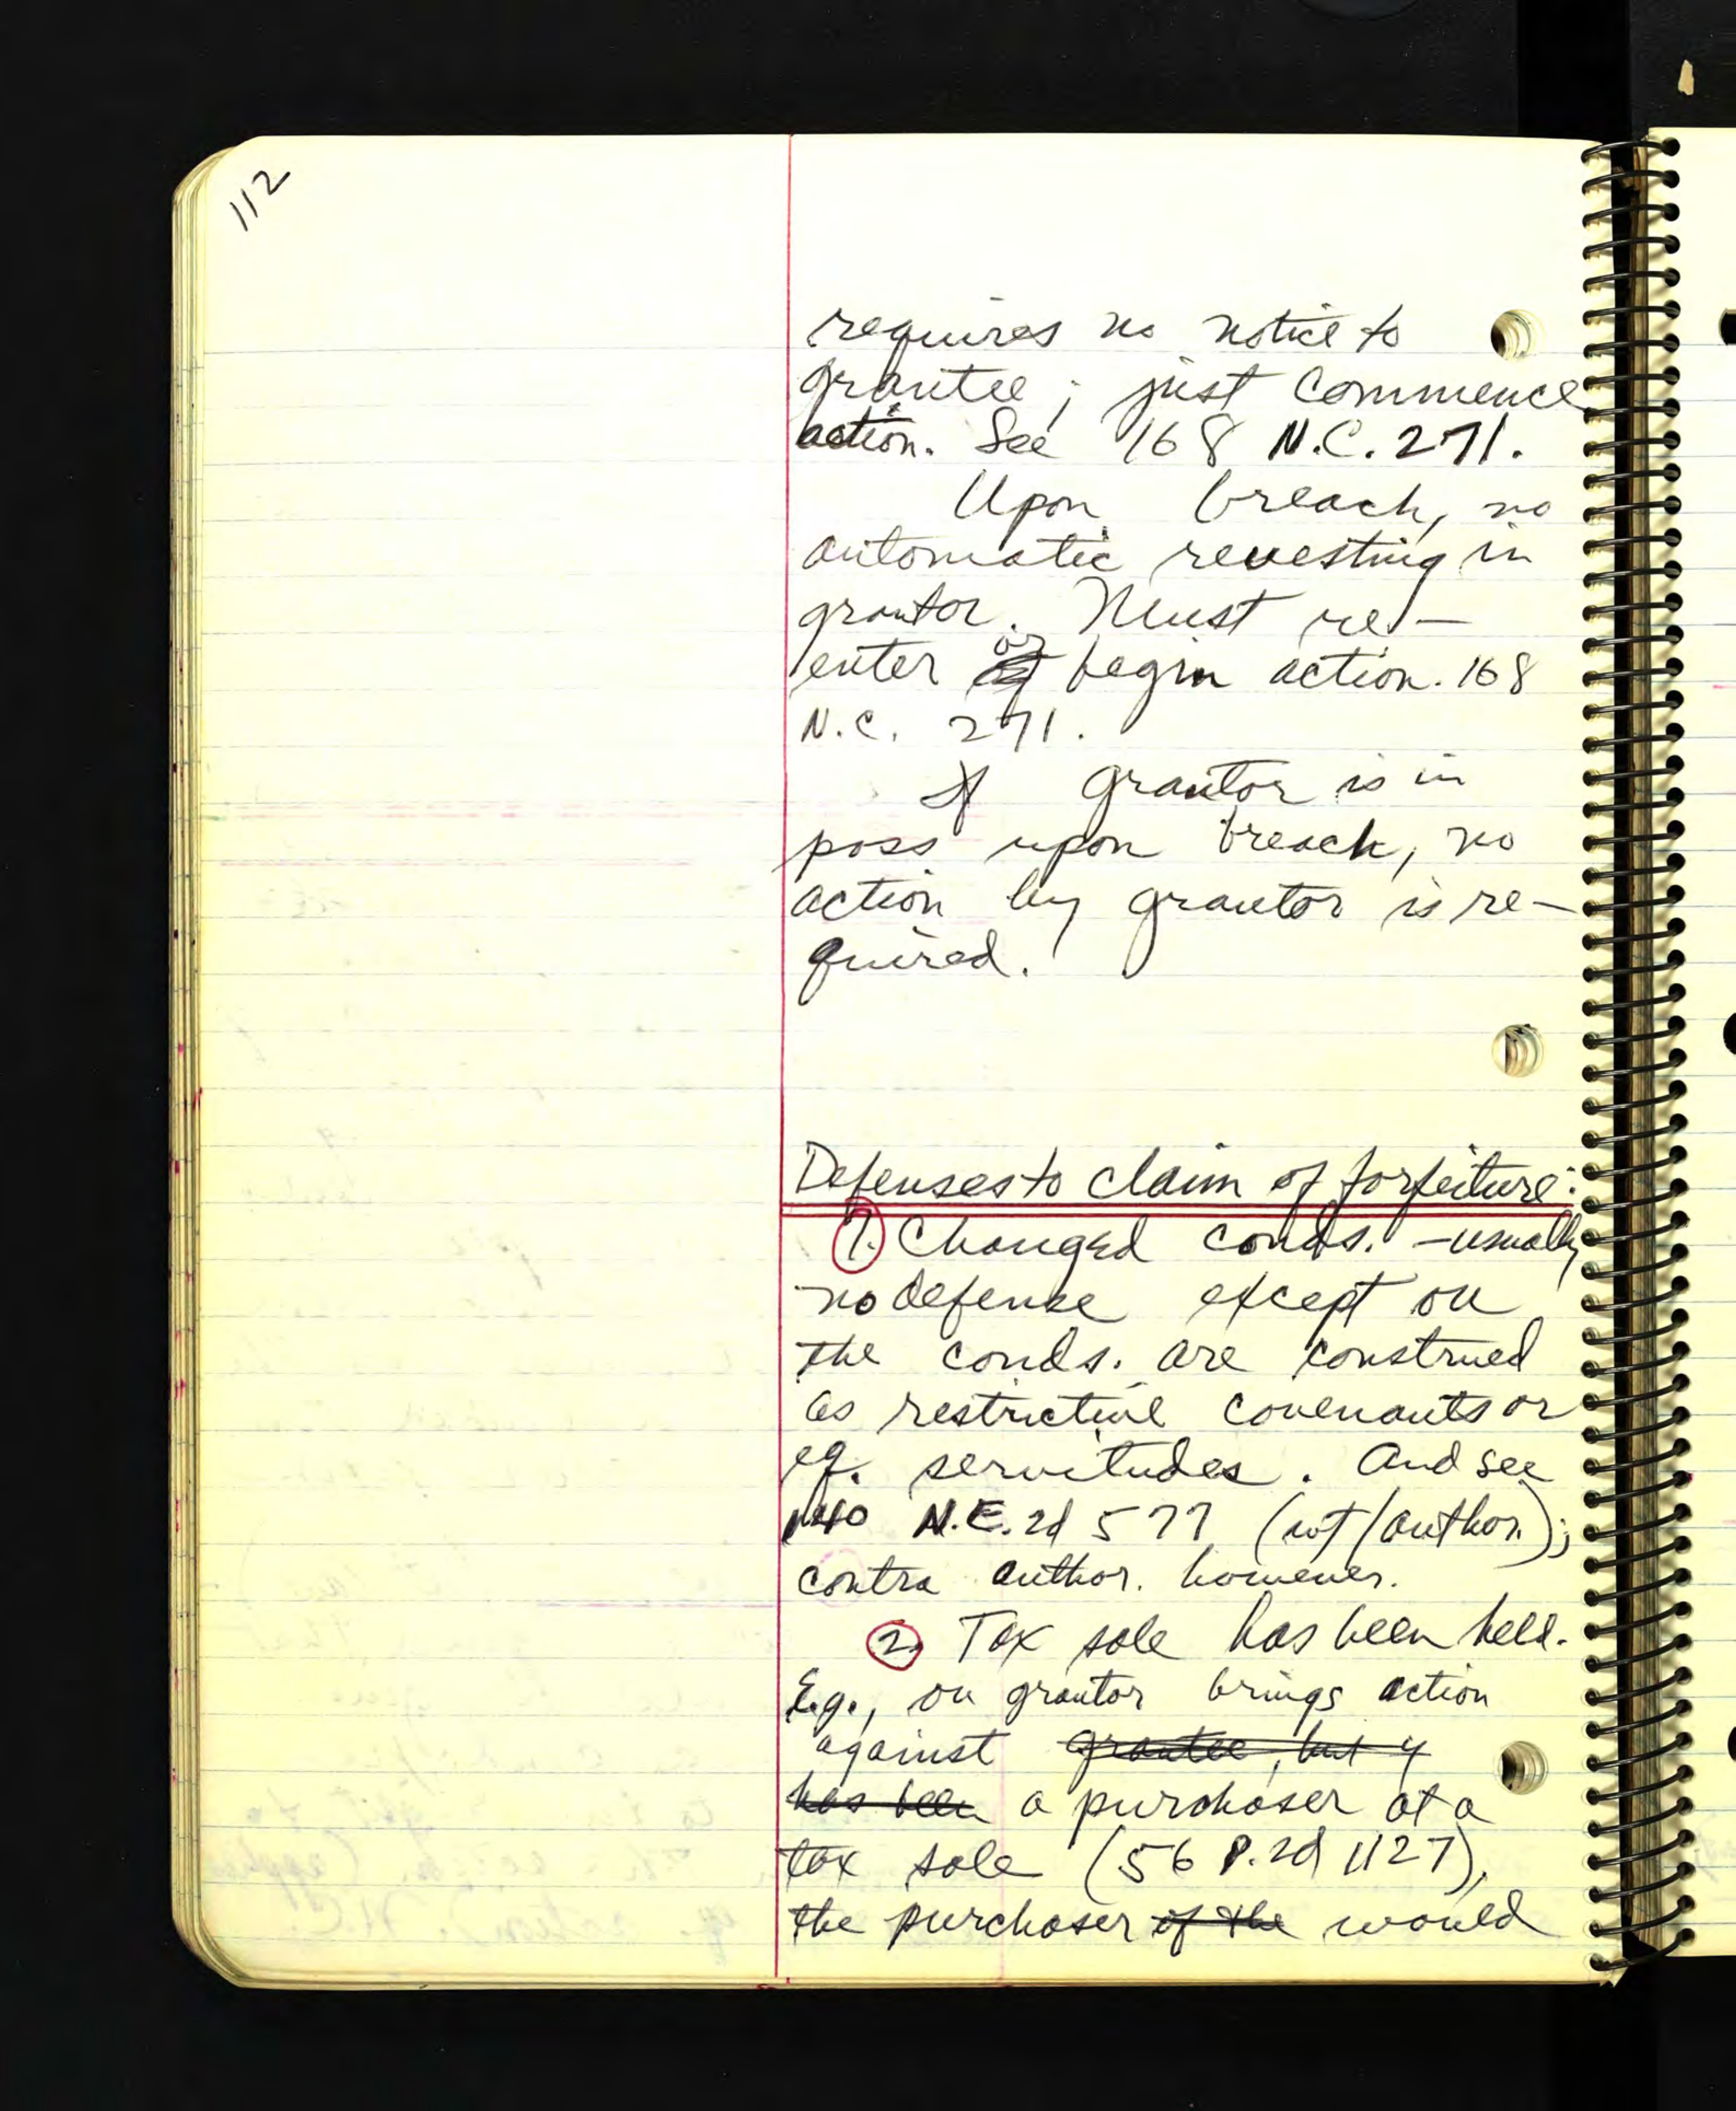 112
requires no notice to
grantee; just commence
action. See 168 N.C. 271.
Upon breach, no
automatic revesting in
grantor. Must re-
enter or begin action. 168
N.C. 271.
If grantor is in
poss upon breach, no
action by grantor is re-
quired.
Defenses to claim of forfeiture:
1. Changed conds. - usually
no defense except ou
the conds. are construed
as restrictive covenants or
eq. servitudes. And see
140 N.E.2d 577 (wt/author.);
contra author. however.
2. Tax sale has been held.
E.g., ou grantor brings action
against grantee, but if
has been a purchaser at a
tax sale (56 P.2d 1127),
the purchaser of the would